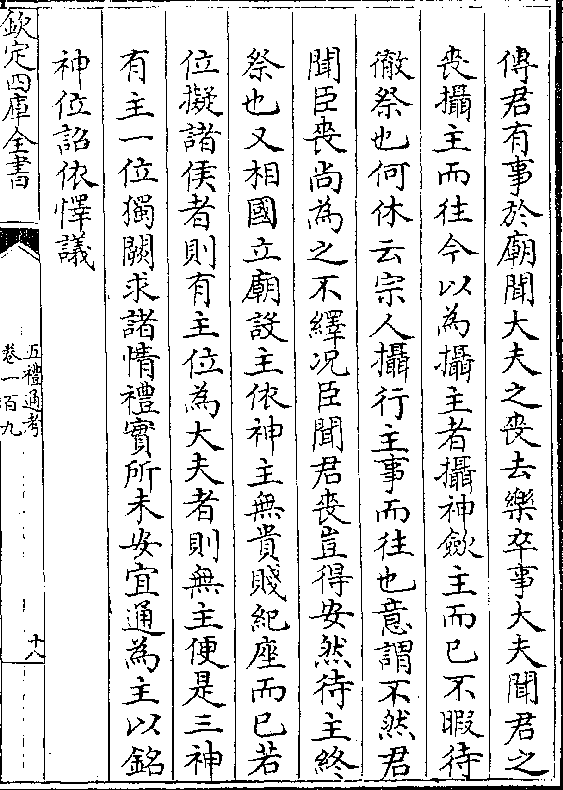 傳君有事於廟聞大夫之喪去樂卒事大夫聞君之
喪攝主而往今以為攝主者攝神歛主而已不暇待
徹祭也何休云宗人攝行主事而往也意謂不然君
聞臣喪尚為之不繹况臣聞君喪豈得安然待主終
祭也又相國立廟設主依神主無貴賤紀座而已若
位擬諸侯者則有主位為大夫者則無主便是三神
有主一位獨闕求諸情禮實所未安宜通為主以銘
神位詔依懌議
欽定四庫全書
五禮通考
卷一百九
十八